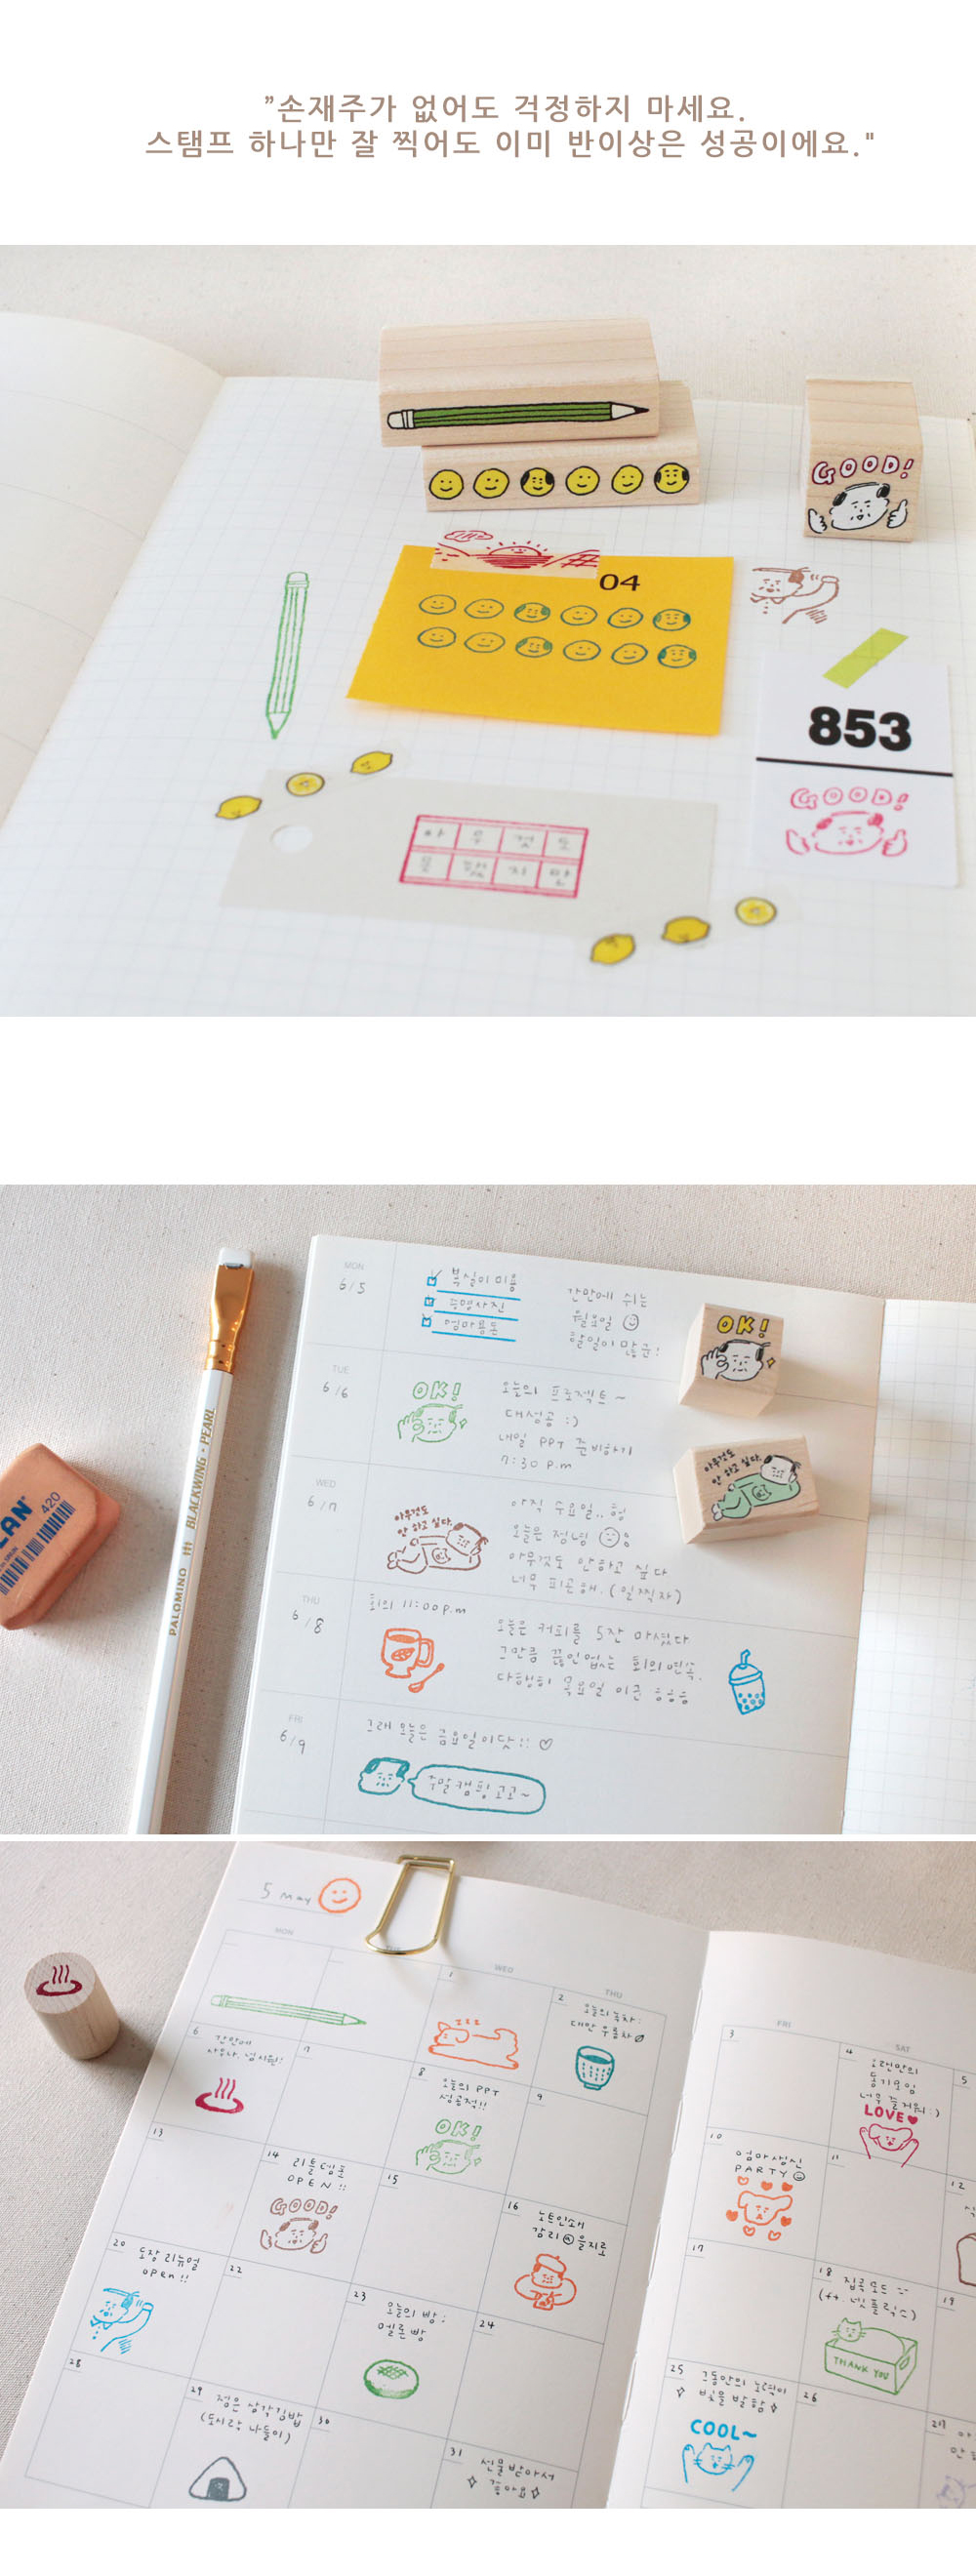 ”손재주가 없어도 걱정하지 마세요.
스탬프 하나만 잘 찍어도 이미 반이상은 성공이에요."
GOOD!
04
853
GOOD!
MON
6/5
복실이 미용
증명사진
엄마용돈
간만에 쉬는
월요일
할일이 많군!
OK!
TUE
6/6
OK!
오늘의 프로젝트~
대성공 :)
내일 PPT 준비하기
7:30 p.m
아무것도
안 하고 싶다.
WED
6/7
아무것도
안 하고 싶다.
아직 수요일..헝
오늘은 정녕
아무것도 안하고 싶다
너무 피곤해.(일찍자)
420
PALOMINO BLACKWING · PEARL
THU
6/8
회의 11:00 p.m
오늘은 커피를 5잔 마셨다
그만큼 끊임없는 회의연속.
다행히 목요일 이군 하하하
FRI
6/9
그래 오늘은 금요일이닷!! ♡
주말캠핑고고~
5 May
MON
WED
THU
FRI
SAT
1
zzz
2
오늘의 녹차:
대만 우롱차
3
4
오랜만의
동기모임
너무 즐거워:)
LOVE♥
5
6
간만에
7
8
오늘의 PPT
성공적!!
OK!
9
10
엄마생신
PARTY
11
12
13
14
리틀템포
OPEN!!
GOOD!
15
16
노트인쇄
감리@을지로
17
18
집콕모드
(ft. 넷플릭스)
THANK YOU
19
20
도장 리뉴얼
open!!
22
23
오늘의 빵:
멜론빵
24
25
그동안의 노력이
빛을 발함
COOL~
26
27
28
29
점은 삼각김밥
(도시락 나들이)
30
31
선물받아서
좋아요